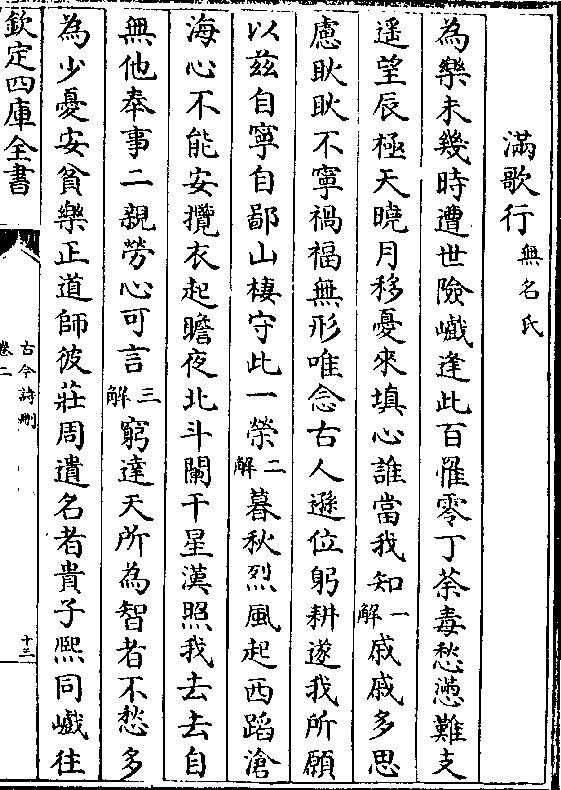 滿歌行無名氏
為樂未幾時遭世險巇逢此百罹零丁荼毒愁懣難支
遥望辰極天曉月移憂來填心誰當我知一解戚戚多思
慮耿耿不寧禍福無形唯念古人遜位躬耕遂我所願
以兹自寧自鄙山棲守此一榮二解暮秋烈風起西蹈滄
海心不能安攬衣起瞻夜北斗闌干星漢照我去去自
無他奉事二親勞心可言三解窮達天所為智者不愁多
為少憂安貧樂正道師彼莊周遺名者貴子熙同巇往
欽定四庫全書
古今詩刪
卷二
十三